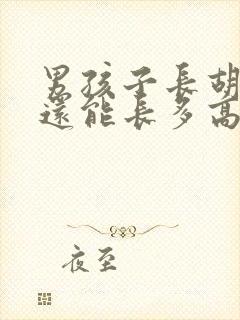 男孩子長胡
還能長多高
夜至